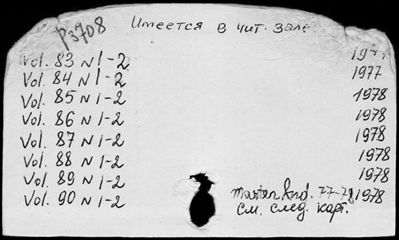 Р3708
Имеется в чит. зале
Vol. 83 N 1-2
Vol. 84 N 1-2 1977
Vol. 85 N 1-2 1978
Vol. 86 N 1-2 1978
Vol. 87 N 1-2 1978
Vol. 88 N 1-2 1978
Vol. 89 N 1-2 1978
Vol. 90 N 1-2 77-78 1978
См. след. карт.